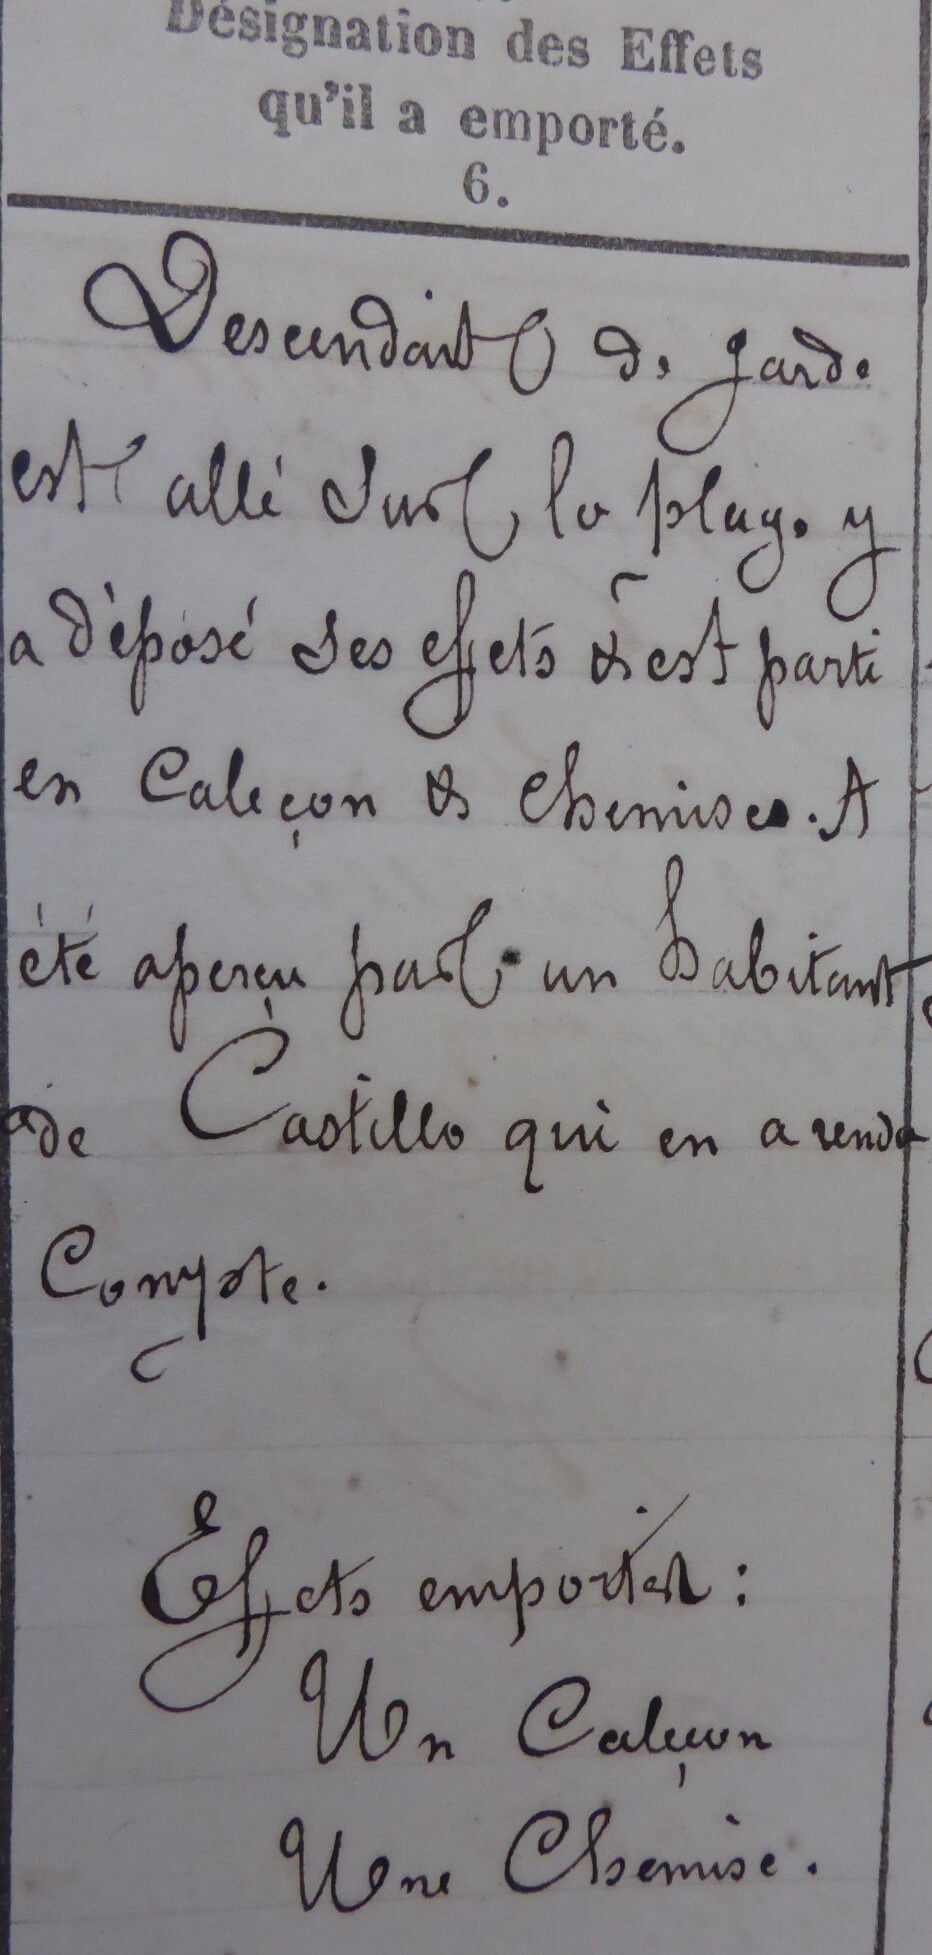 Désignation des Effets
qu'il a emporté.
6.
Descendait de garde
est allé sur la plage y
a déposé ses effets & est parti
en Caleçon & Chemise. A
été aperçu par un habitant
de Castillo qui en a rendu
Compte.
Effets emportés :
Un Caleçon
Une Chemise.